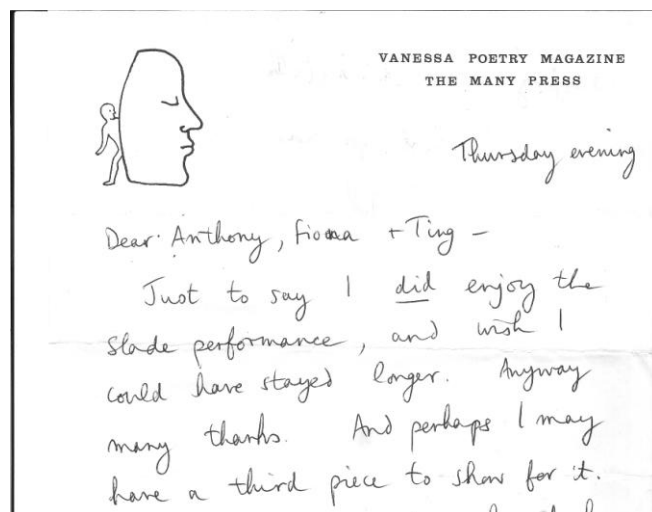 VANESSA POETRY MAGAZINE
THE MANY PRESS
Thursday evening
Dear Anthony, Fiona + Ting –
Just to say I did enjoy the
Slade performance, and wish I
could have stayed longer. Anyway
many thanks. And perhaps I may
have a third piece to show for it.